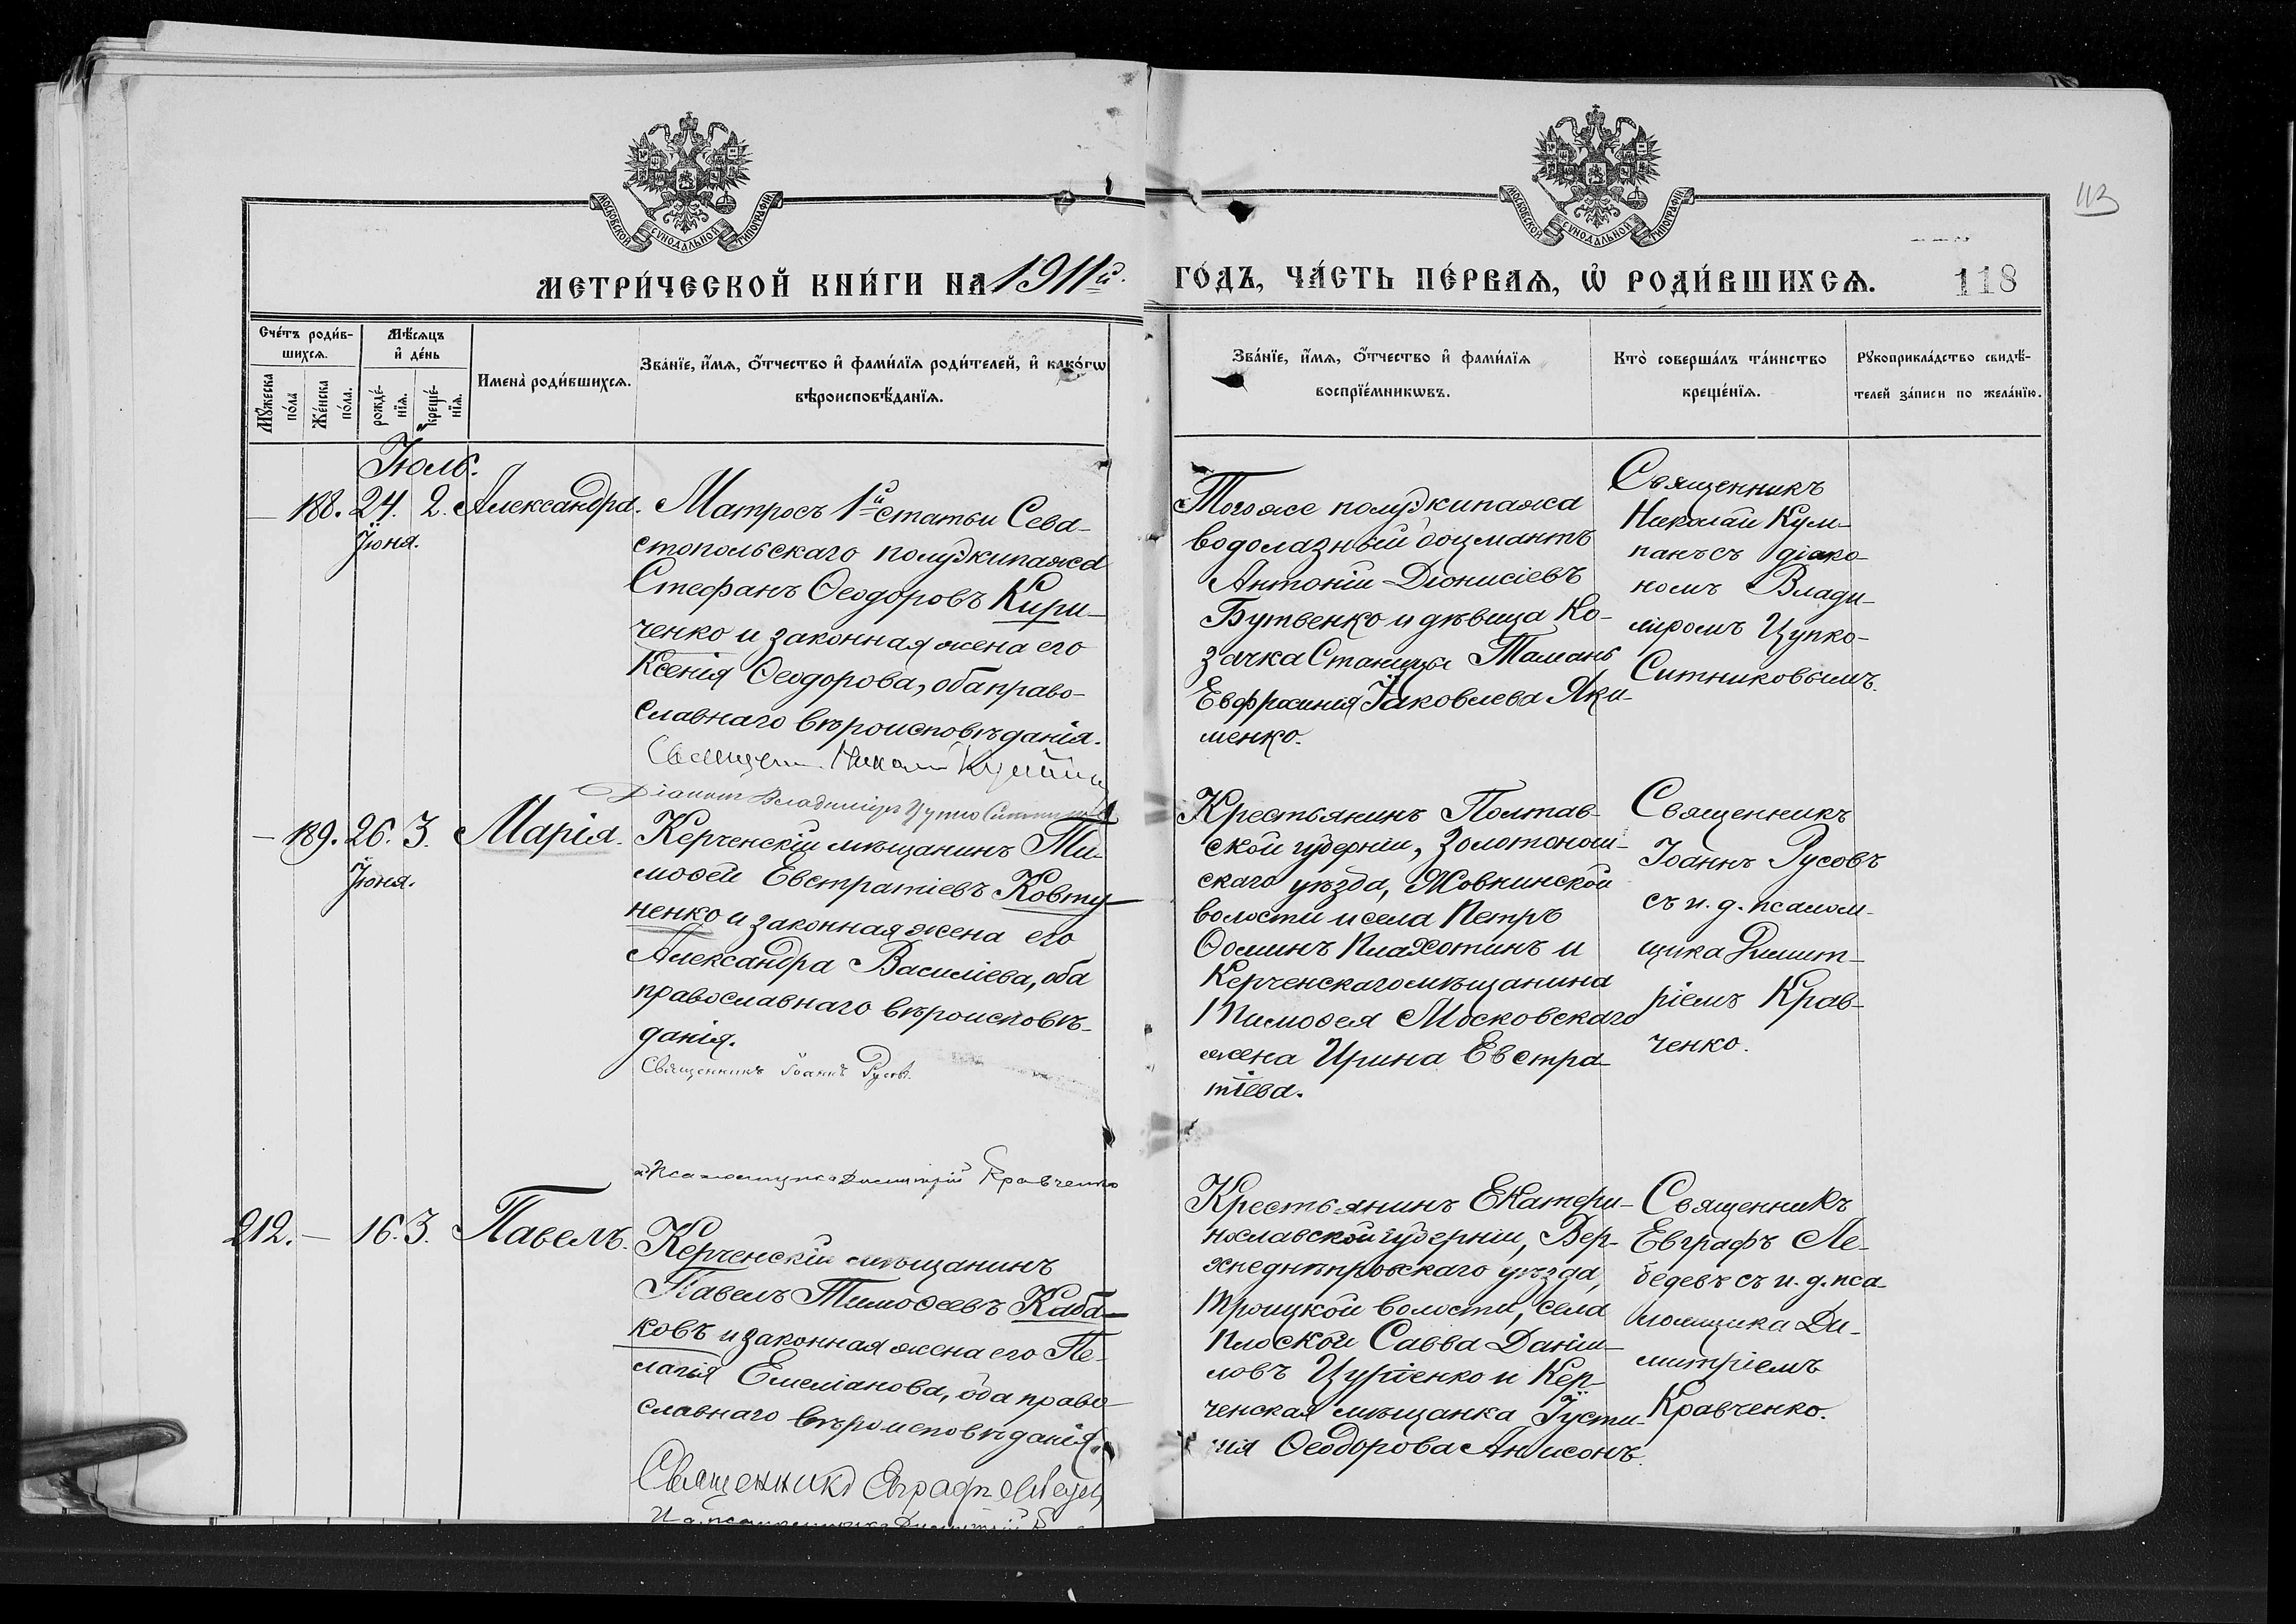 МОСКОВСКОЙ СѴНОДАЛЬНОЙ ТИПОГРАФІИ
МОСКОВСКОЙ СѴНОДАЛЬНОЙ ТИПОГРАФІИ
113
МЕТРИ́ЧЕСКОЙ КНИ́ГИ НА 1911й.
ГО́ДЪ, ЧА́СТЬ ПЕ́РВАѦ, Ѽ РОДИ́ВШИХСѦ.
118
Сче́тъ роди́в-
шихсѧ.
Мꙋ́жеска
по́ла
Же́нска
по́ла.
Мѣ́сѧцъ
и҆ де́нь
рожде́-
нїѧ.
креще́-
нїѧ.
Имена̀ роди́вшихсѧ.
Зва́нїе, и҆́мѧ, ѻ҆́тчество и҆ фами́лїѧ роди́телей, и҆ како́гѡ
вѣроисповѣ́данїѧ.
Зва́нїе, и҆́мѧ, ѻ҆́тчество и҆ фами́лїѧ
воспрїе́мникѡвъ.
Кто̀ соверша́лъ та́инство
креще́нїѧ.
Рꙋкоприкла́дство свидѣ́-
телей за́писи по жела́нїю.
Іюль.
— 188. 24. 2. Александра.
Іюня.
Матросъ 1й статьи Сева-
стопольскаго полуэкипажа
Стефанъ Ѳеодоровъ Кири-
ченко и законная жена его
Ксенія Ѳеодорова, оба право-
славнаго вѣроисповѣданія.
Священ. Николай
Діаконъ Владиміръ Цупко
Тогоже полуэкипажа
водолазный боцмантъ
Антоній Діонисіевъ
Бутвенко и дѣвица Ко-
зачка Станицы Тамань
Евфросинія Іаковлева Яки-
менко.
Священникъ
Николай Кум-
панъ съ діако-
номъ Влади-
міромъ Цупко-
Ситниковымъ.
— 189. 26. 3. Марія.
Іюня.
Керченскій мѣщанинъ Ти-
моѳей Евстратіевъ Ковту-
ненко и законная жена его
Александра Василіева, оба
православнаго вѣроисповѣ-
данія.
Священникъ Іоаннъ Русовъ.
Псаломщика Димитрій Кравченко
Крестьянинъ Полтав-
ской губерніи, Золотонош-
скаго уѣзда, Жовнинской
волости и села Петръ
Ѳоминъ Плахотинъ и
Керченскаго мѣщанина
Тимоѳея Московскаго
жена Ирина Евстра-
тіева.
Священникъ
Іоаннъ Русовъ
съ и. д. псалом-
щика Димит-
ріемъ Крав-
ченко.
212. — 16. 3. Павелъ.
Керченскій мѣщанинъ
Павелъ Тимоѳеевъ Каба-
ковъ и законная жена его Пе-
лагія Емеліанова, оба право-
славнаго вѣроисповѣданія.
Священникъ Евграфъ Лебедевъ
И д псаломщика Димитрій
Крестьянинъ Екатери-
нославской губерніи, Вер-
хнеднѣпровскаго уѣзда,
Троицкой волости, села
Плоской Савва Даніи-
ловъ и Кер-
ченская мѣщанка Іусти-
нія Ѳеодорова
Священникъ
Евграфъ Ле-
бедевъ съ и. д. пса-
ломщика Ди-
митріемъ
Кравченко.